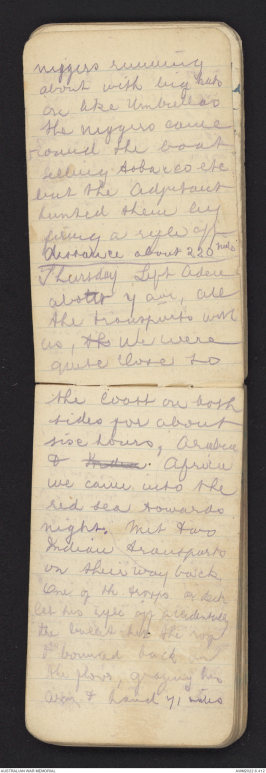 niggers running
about with big hats
on like Umbrellas
the niggers came
round the boat
selling tobacco etc
but the Adjutant
hunted them by
firing a rifle off
distance about 220 mls
Thursday Left Aden
about 7 am, all
the transports with
us, We were
quite close to
the Coast on both
sides for about
six hours, Arabia
& India. Africa
we came into the
red sea towards
night. Met two
Indian transports
on their way back,
One of the troops on deck
let his rifle off accidentally
the bullet hit the roof
& bounced back
the floor, grazing his
arm & hand 71 miles
AUSTRALIAN WAR MEMORIAL
AWM2022.6.412